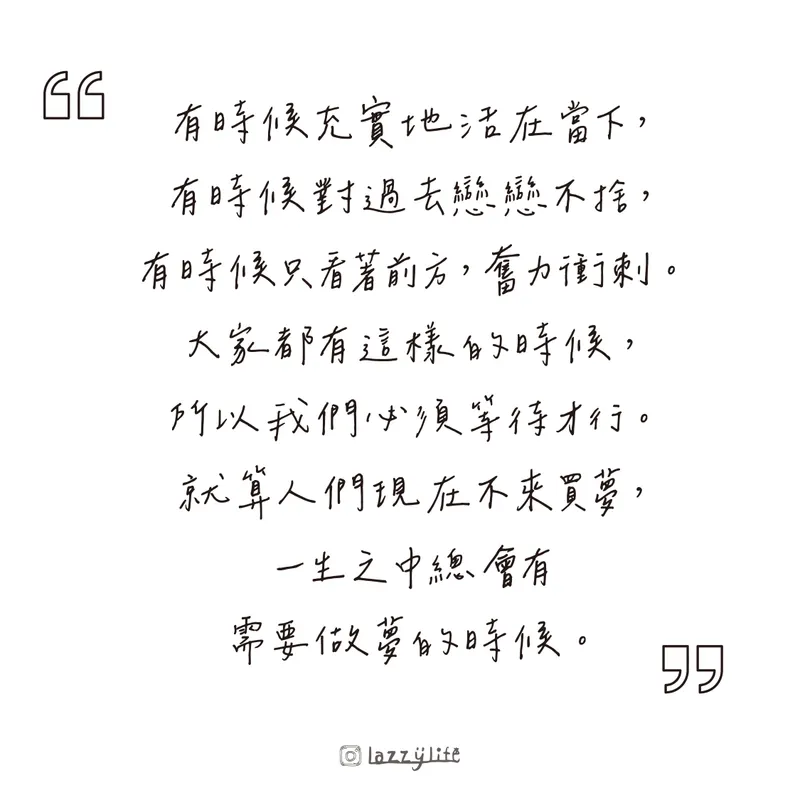 有時候充實地活在當下，
有時候對過去戀戀不捨，
有時候只看著前方，奮力衝刺。
大家都有這樣的時候，
所以我們必須等待才行。
就算人們現在不來買夢，
一生之中總會有
需要做夢的時候。
lazzylife